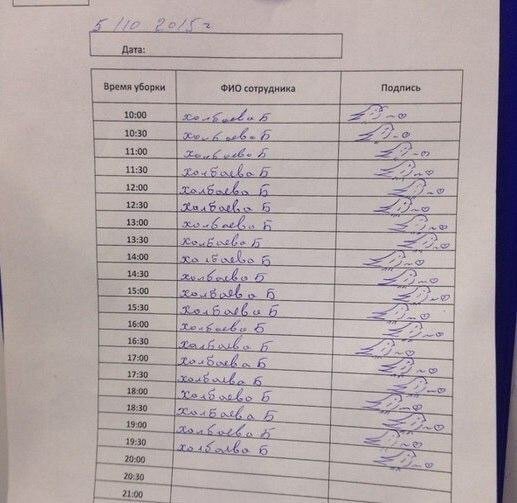 5/10 2015г
Дата:
Время уборки ФИО сотрудника Подпись
10:00 Холбаева Б
10:30 Холбаева Б
11:00 Холбаева Б
11:30 Холбаева Б
12:00 Холбаева Б
12:30 Холбаева Б
13:00 Холбаева Б
13:30 Холбаева Б
14:00 Холбаева Б
14:30 Холбаева Б
15:00 Холбаева Б
15:30 Холбаева Б
16:00 Холбаева Б
16:30 Холбаева Б
17:00 Холбаева Б
17:30 Холбаева Б
18:00 Холбаева Б
18:30 Холбаева Б
19:00 Холбаева Б
19:30 Холбаева Б
20:00
20:30
21:00